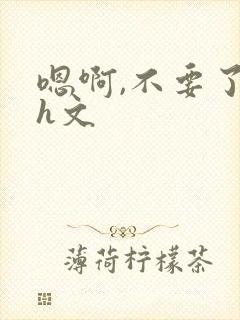 嗯啊,不要了
h文
薄荷柠檬茶